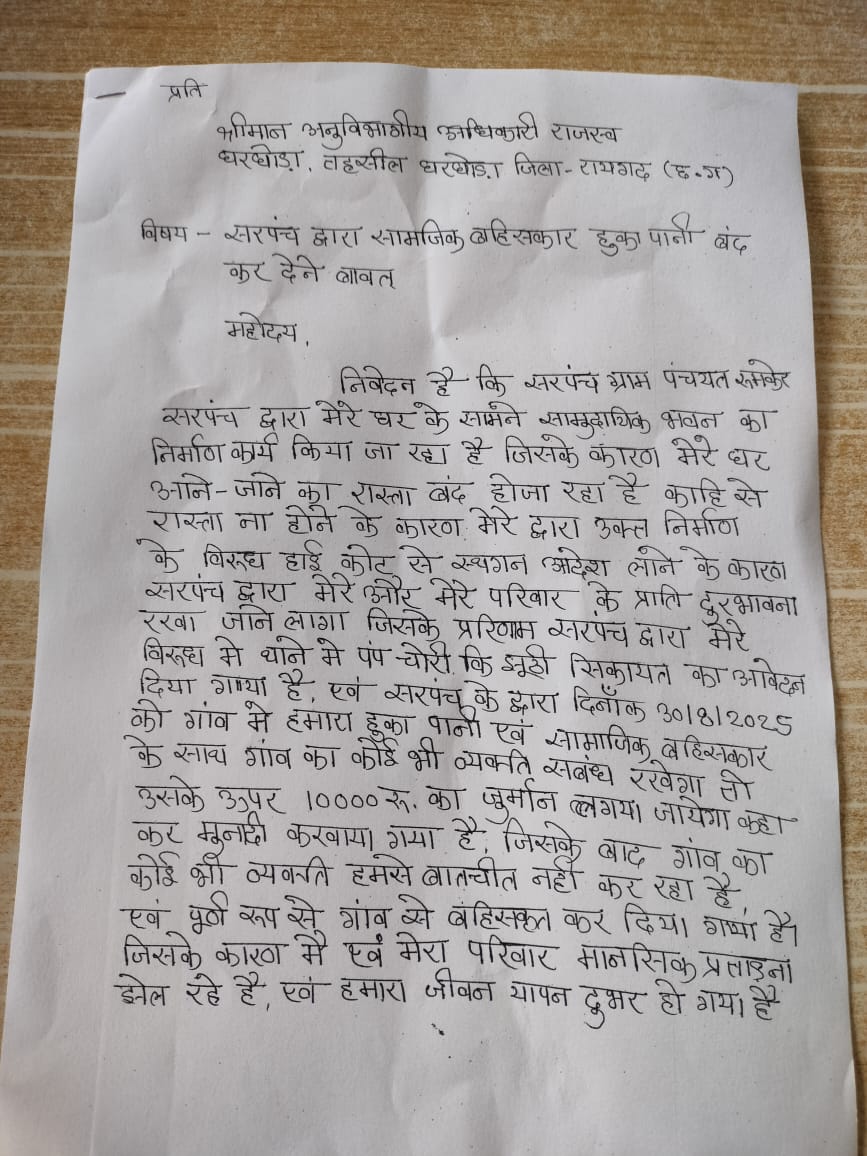 प्रति
श्रीमान अनुविभागीय अधिकारी राजस्व
घरघोड़ा, तहसील घरघोड़ा जिला-रायगढ (छ.ग)
विषय - सरपंच द्वारा सामजिक बहिसकार हुका पानी बंद
कर देने बावत्
महोदय,
निवेदन है कि सरपंच ग्राम पंचयत रूमकेर
सरपंच द्वारा मेरे घर के सामने सामुदायिक भवन का
निर्माण कार्य किया जा रहा है जिसके कारण मेरे घर
आने-जाने का रास्ता बंद होजा रहा है काहि से
रास्ता ना होने के कारण मेरे द्वारा उक्त निर्माण
के विरूध हाई कोट से स्थगन आदेश लाने के कारण
सरपंच द्वारा मेरे और मेरे परिवार के प्राति दुरभावना
रखा जाने लागा जिसके परिणाम सरपंच द्वारा मेरे
विरूध मे थाने मे पंप चोरी कि झूठी सिकायत का आवेदन
दिया गाया है, एवं सरपंच के द्वारा दिनाँक 30/8/2025
को गांव मे हमारा हुका पानी एवं सामाजिक बहिसकार
के साथ गांव का कोई भी व्यक्ति सबंध रखेगा तो
उसके ऊपर 10000 रू. का जुर्मान लगया जायेगा कहा
कर मूनादी करवाया गया है, जिसके बाद गांव का
कोई भी व्यक्ती हमसे बातचीत नही कर रहा है,
एवं पूर्ण रूप से गांव से बहिसकृत कर दिया गया है।
जिसके कारण मै एवं मेरा परिवार मानसिक प्रताड़ना
झेल रहे है, एवं हमारा जीवन यापन दुभर हो गया है